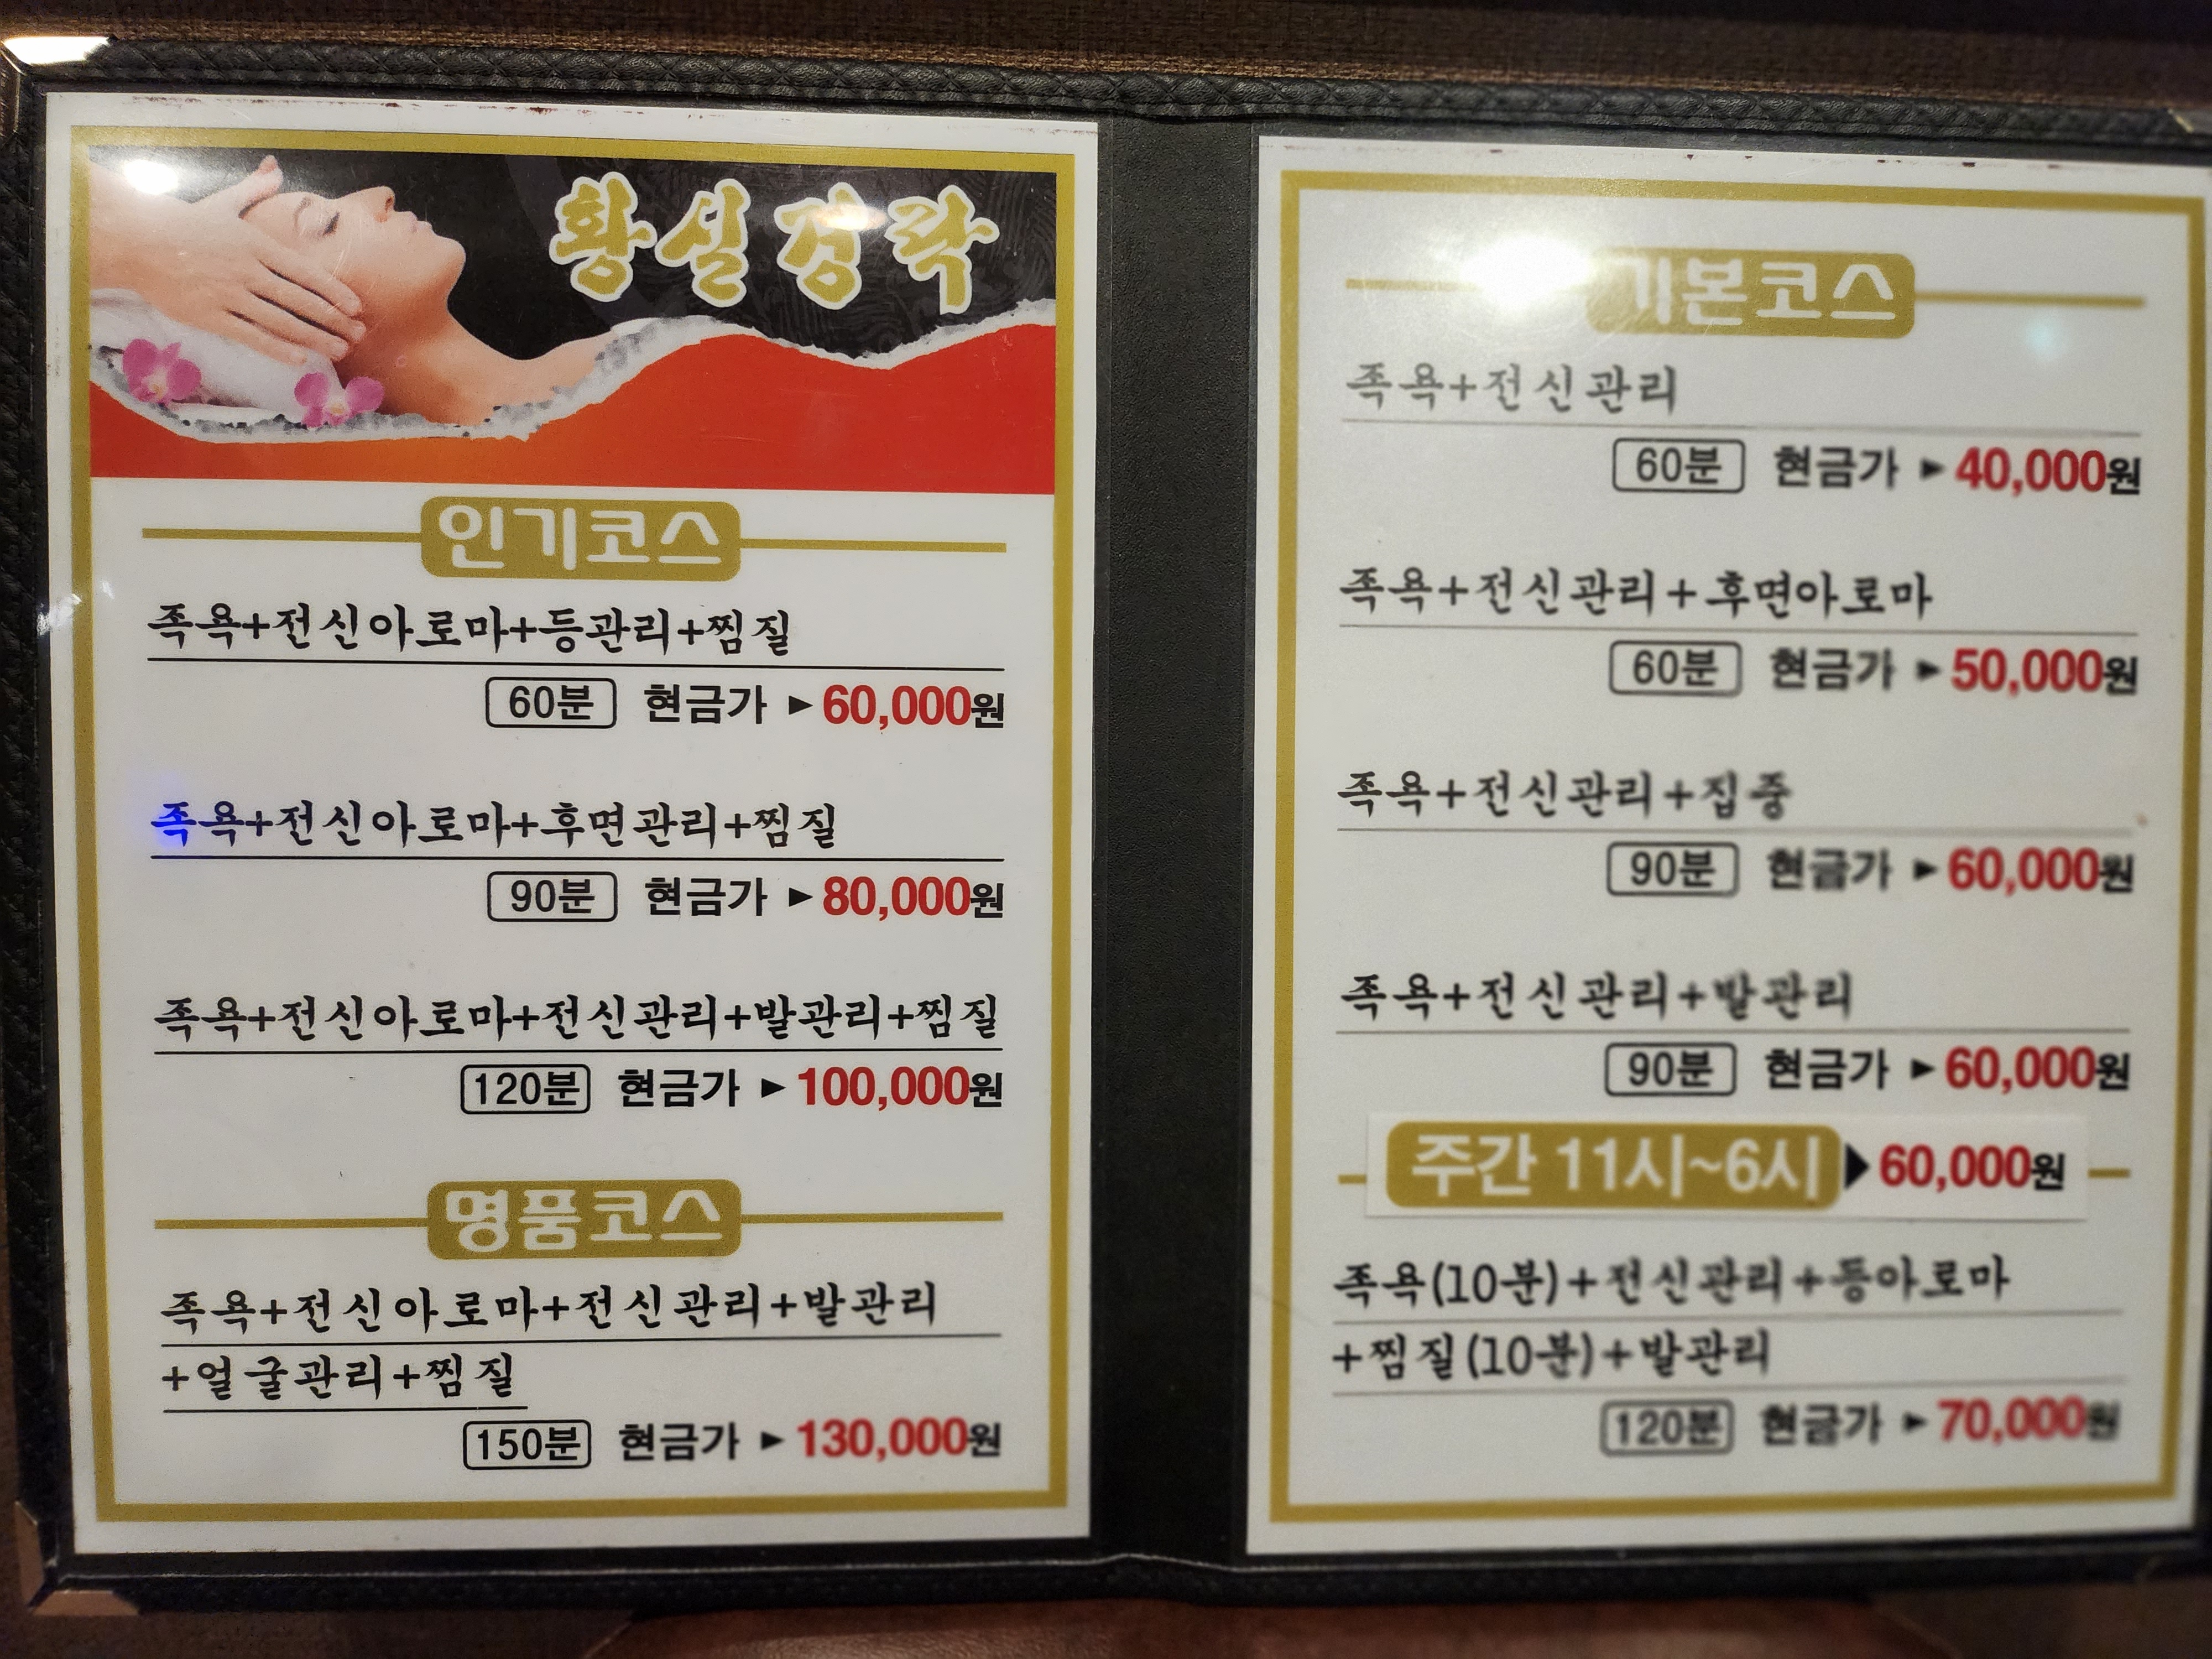 황실경락
인기코스
족욕+전신아로마+등관리+찜질
60분 현금가 ▶ 60,000원
족욕+전신아로마+후면관리+찜질
90분 현금가 ▶ 80,000원
족욕+전신아로마+전신관리+발관리+찜질
120분 현금가 ▶ 100,000원
명품코스
족욕+전신아로마+전신관리+발관리
+얼굴관리+찜질
150분 현금가 ▶ 130,000원
기본코스
족욕+전신관리
60분 현금가 ▶ 40,000원
족욕+전신관리+후면아로마
60분 현금가 ▶ 50,000원
족욕+전신관리+집중
90분 현금가 ▶ 60,000원
족욕+전신관리+발관리
90분 현금가 ▶ 60,000원
주간 11시~6시 ▶ 60,000원
족욕(10분)+전신관리+등아로마
+찜질(10분)+발관리
120분 현금가 ▶ 70,000원